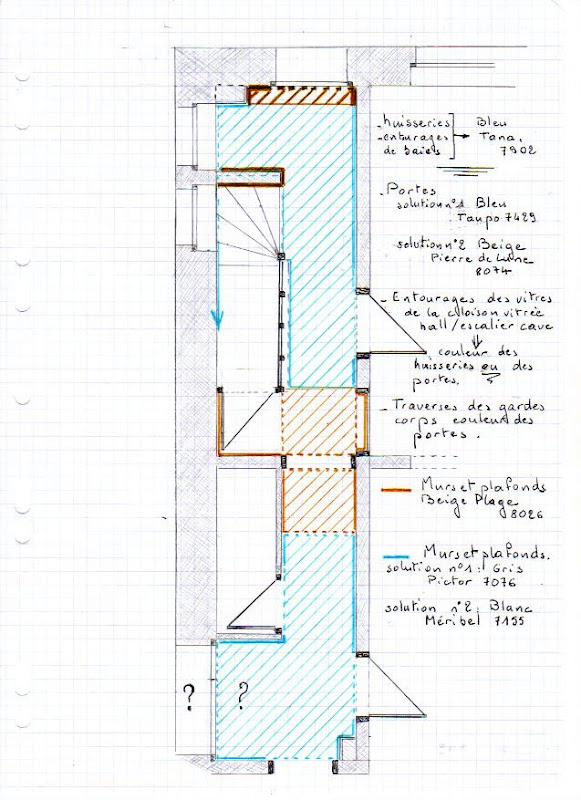 - huisseries
- entourages
de baies
Bleu
Tana.
7902
- Portes
solution n°1 Bleu
Taupo 7429
solution n°2 Beige
Pierre de Lune
8074
- Entourages des vitres
de la cloison vitrée
hall/escalier cave
couleur des
huisseries ou des
portes.
- Traverses des gardes
corps couleur des
portes.
Murs et plafonds
Beige Plage
8026
Murs et plafonds.
solution n°1: Gris
Pictor 7076
solution n°2: Blanc
Méribel 7155
? ?